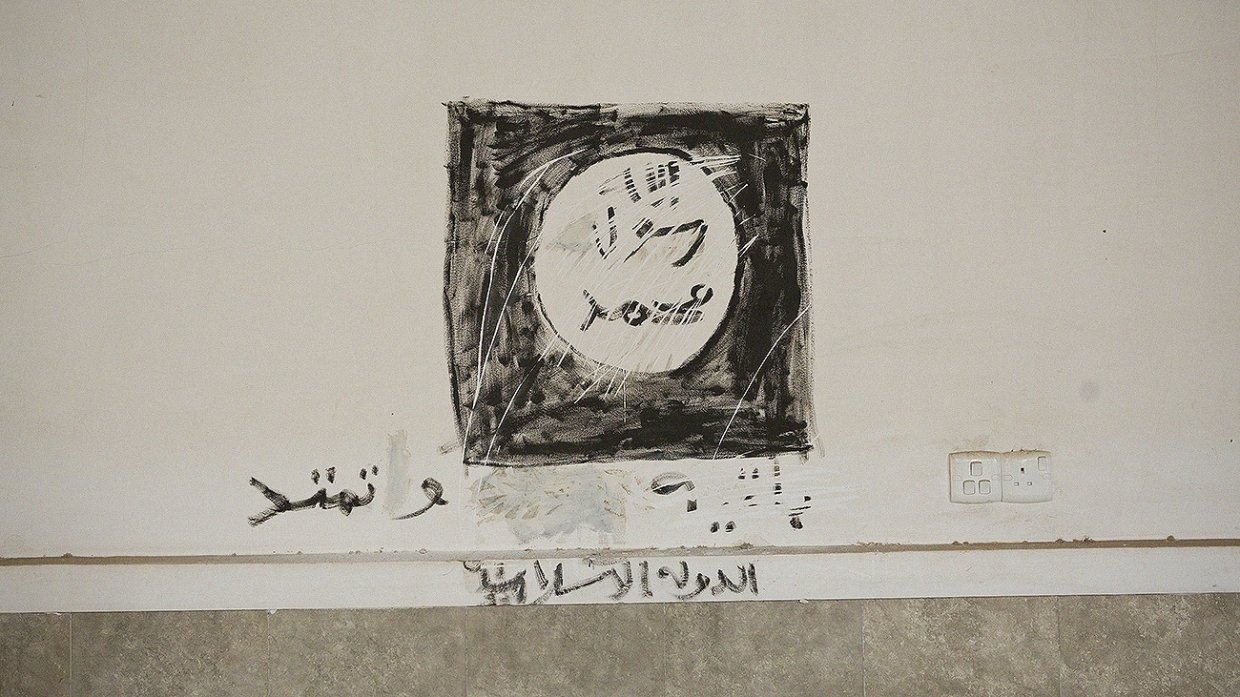 الله
رسول
محمد
باقيه و تتمدد
الدوله الاسلاميه